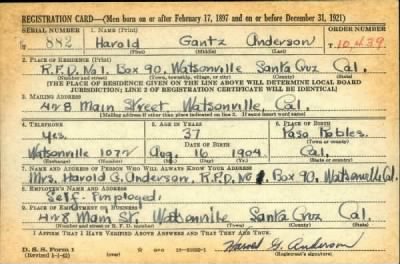 REGISTRATION CARD—(Men born on or after February 17, 1897 and on or before December 31, 1921)
SERIAL NUMBER 1. NAME (Print) ORDER NUMBER
882 Harold Gantz Anderson T10,439
(First) (Middle) (Last)
2. PLACE OF RESIDENCE (Print)
R.F.D. No 1. Box 90. Watsonville Santa Cruz Cal.
(Number and street) (Town, township, village, or city) (County) (State)
[THE PLACE OF RESIDENCE GIVEN ON THE LINE ABOVE WILL DETERMINE LOCAL BOARD
JURISDICTION; LINE 2 OF REGISTRATION CERTIFICATE WILL BE IDENTICAL]
3. MAILING ADDRESS
428 Main Street Watsonville, Cal.
[Mailing address if other than place indicated on line 2. If same insert word same]
4. TELEPHONE 5. AGE IN YEARS 6. PLACE OF BIRTH
Yes. 37 Paso Robles.
DATE OF BIRTH (Town or county)
Watsonville 1072 Aug. 16 1904 Cal.
(Exchange) (Number) (Mo.) (Day) (Yr.) (State or country)
7. NAME AND ADDRESS OF PERSON WHO WILL ALWAYS KNOW YOUR ADDRESS
Mrs. Harold G. Anderson, R.F.D. No 1. Box 90, Watsonville Cal.
8. EMPLOYER'S NAME AND ADDRESS
Self-Employed.
9. PLACE OF EMPLOYMENT OR BUSINESS
428 Main St. Watsonville Santa Cruz Cal.
(Number and street or R. F. D. number) (Town) (County) (State)
I AFFIRM THAT I HAVE VERIFIED ABOVE ANSWERS AND THAT THEY ARE TRUE.
D. S. S. Form 1
(Revised 1-1-42) Harold G. Anderson
(Registrant's signature)